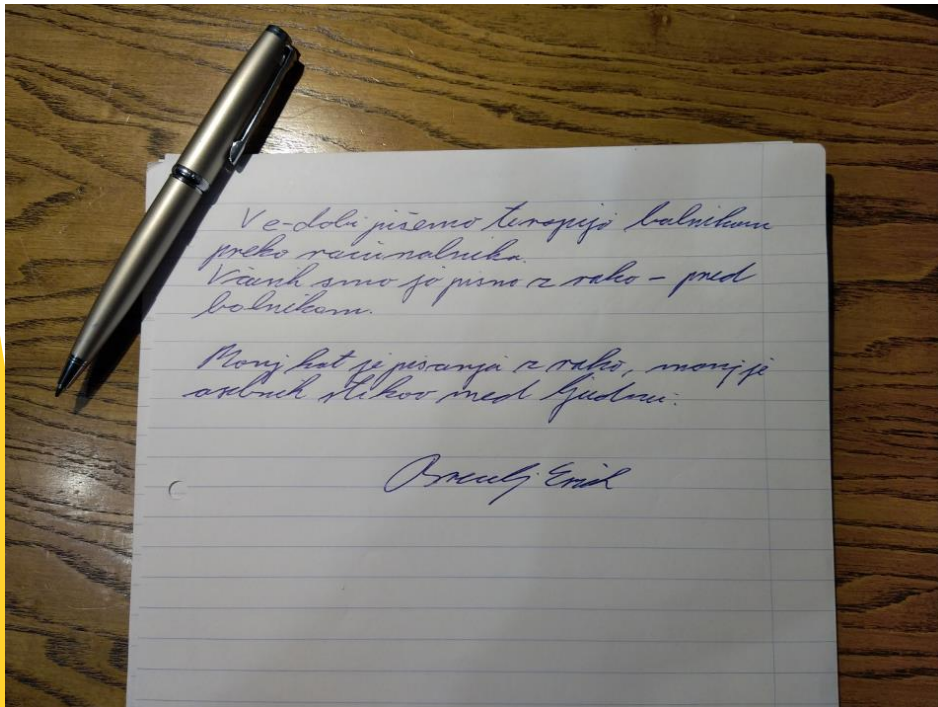 V e-dobi pišemo terapijo bolnikom
preko računalnika.
Včasih smo jo pisno z roko - pred
bolnikom.
Manj kot je pisanja z roko, manj je
osebnih stikov med ljudmi.
Brecelj Erik